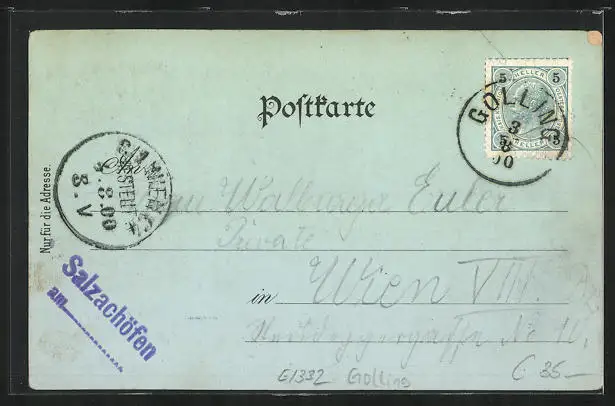 Postkarte
5 HELLER 5
GOLLING
3
8
00
5 HELLER 5
BESTELLT
.8.00
8.V
An
Walburga Euler
Private
in Wien VIII.
No 11.
Nur für die Adresse.
Salzachöfen
am
E1332 Golling
C 35-